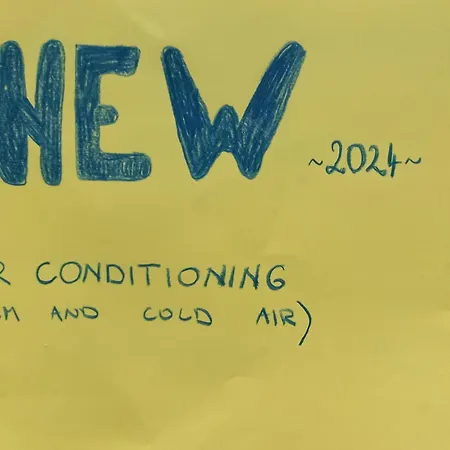 NEW ~2024~
R CONDITIONING
M AND COLD AIR)